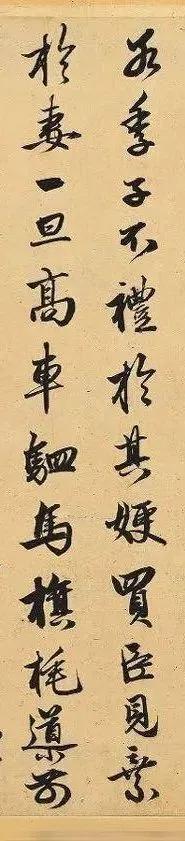 若季子不禮於其嫂買臣見棄
於妻一旦高車駟馬旗旄導前